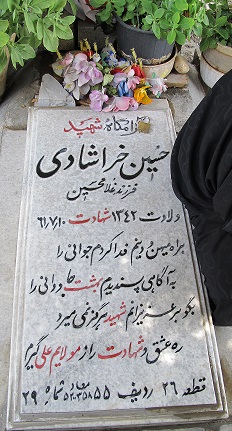 آرامگاه شهید
حسین خراشادی
فرزند غلامحسین
ولادت ۱۳۴۲ شهادت ۶۱/۷/۱۰
براه میهن و دینم فدا کردم جوانی را
به آگاهی پسندیدم بهشت جاودانی را
بگو بر عزیزانم شهید هرگز نمی میرد
ره عشق و شهادت را ز مولایم علی گیرم
قطعه ۲۶ ردیف ۵۵ شماره ۲۹